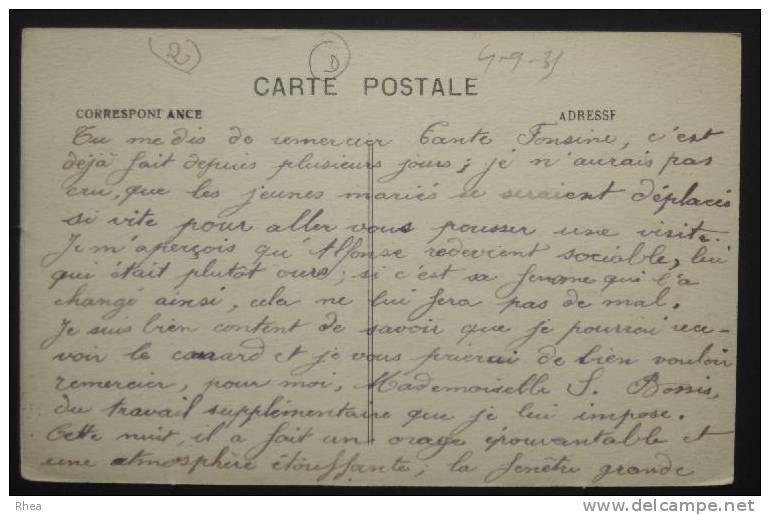 (2)
D
4-9-35
CARTE POSTALE
CORRESPONDANCE
ADRESSE
Tu me dis de remercier Tante Fonsine, c'est
déjà fait depuis plusieurs jours; je n'aurais pas
cru, que les jeunes mariés se seraient déplacés
si vite pour aller vous pousser une visite.
Je m'aperçois qu'Alfonse redevient sociable, lui
qui était plutôt ours; si c'est sa femme qui l'a
changé ainsi, cela ne lui fera pas de mal.
Je suis bien content de savoir que je pourrai rece-
voir le canard et je vous prierai de bien vouloir
remercier, pour moi, Mademoiselle S. Bossis,
du travail supplémentaire que je lui impose.
Cette nuit, il a fait un orage épouvantable et
une atmosphère étouffante; la fenêtre grande
Rhea
www.delcampe.net